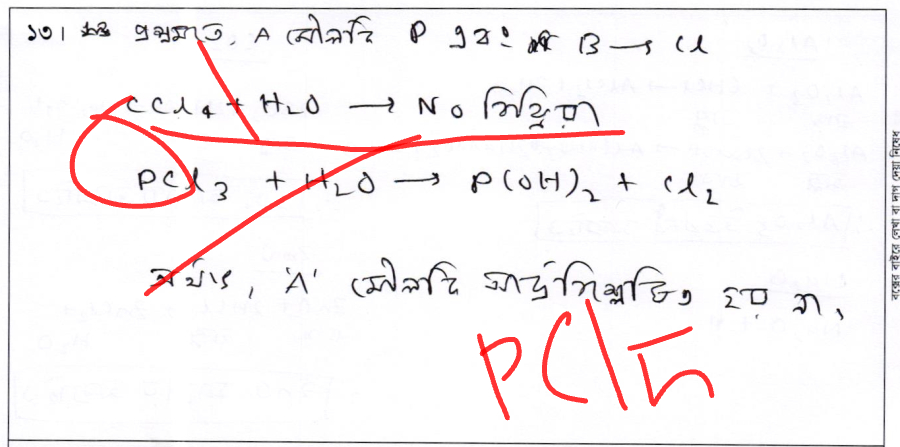 ১৩। প্রশ্নমতে, A মৌলটি P এবং B → Cl
CCl₄ + H₂O → No বিক্রিয়া
PCl₃ + H₂O → P(OH)₂ + Cl₂
অর্থাৎ, 'A' মৌলটি আর্দ্রবিশ্লেষিত হয় না,
PCl₅
দাগের বাইরে লেখা বা দাগ দেয়া নিষেধ